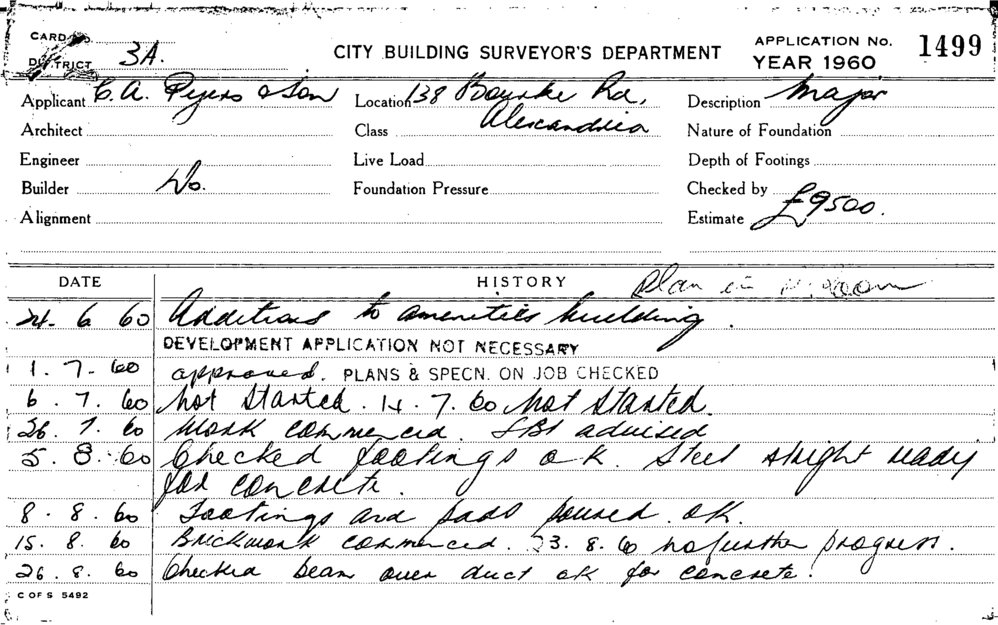 CARD
DISTRICT 3A.
CITY BUILDING SURVEYOR'S DEPARTMENT
APPLICATION No. 1499
YEAR 1960
Applicant C. A. Pyers & Son
Location 138 Bourke Rd,
Description Major
Architect
Class Alexandria
Nature of Foundation
Engineer
Live Load
Depth of Footings
Builder Do.
Foundation Pressure
Checked by
Alignment
Estimate £9500.
DATE HISTORY Plan in
24. 6 60 Additions to amenities building.
DEVELOPMENT APPLICATION NOT NECESSARY
1. 7. 60 approved. PLANS & SPECN. ON JOB CHECKED
6. 7. 60 Not started. 14. 7. 60 Not started.
26. 7. 60 Work commenced. SBI advised
5. 8. 60 Checked footings o.k. Steel ready
for concrete.
8. 8. 60 Footings and pads poured. ok.
15. 8. 60 Brickwork commenced. 23. 8. 60 no further progress.
26. 8. 60 Checked beam over duct ok for concrete.
C OF S 5492